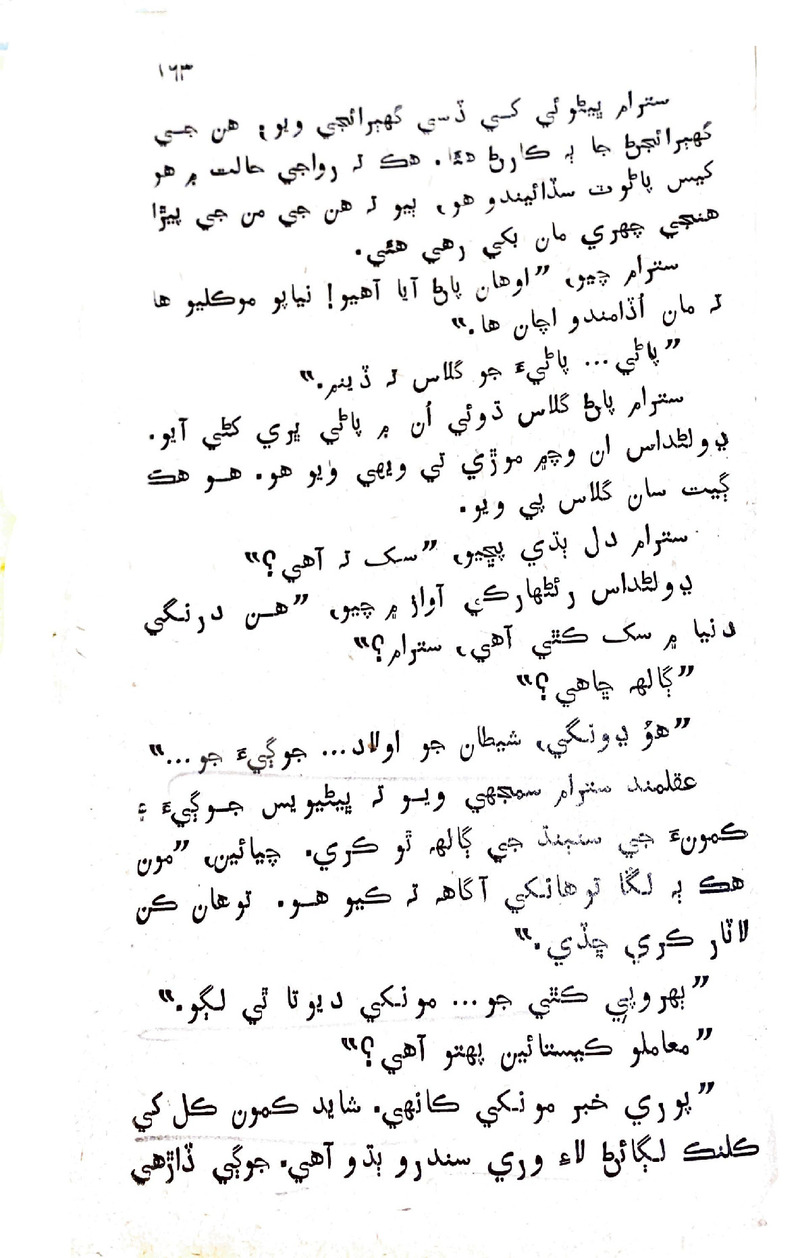 ١٦٣
سترام ڀيڻوئي کسي ڏسي گهبرائجي ويو؛ هن جسي
گهبرائجڻ جا ٻه ڪارڻ هئا. هڪ ته رواجي حالت ۾ هو
کيس پاڻوٽ سڏائيندو هو، ٻيو ته هن جي من جي پيڙا
هنجي چهري مان بکي رهي هئي.
سترام چيو، ”اوهان پاڻ آيا آهيو! نياپو موڪليو ها
ته مان اُڏامندو اچان ها.“
”پاڻي... پاڻيءَ جو گلاس ته ڏينم.“
سترام پاڻ گلاس ڌوئي اُن ۾ پاڻي ڀري کڻي آيو.
ڍولڻداس ان وچ۾ موڙي تي ويهي ويو هو. هو هڪ
ڳيت سان گلاس پي ويو.
سترام دل ٻڌي پڇيو، ”سک ته آهي؟“
ڍولڻداس رئڻهارڪي آواز ۾ چيو، ”هن درنگي
دنيا ۾ سک ڪٿي آهي، سترام؟“
”ڳالهه ڇاهي؟“
”هوُ ڍونگي، شيطان جو اولاد... جوڳيءَ جو...“
عقلمند سترام سمجهي ويو ته ڀيڻيويس جوڳيءَ ۽
ڪمونءَ جي سنٻنڌ جي ڳالهه ٿو ڪري. چيائين، ”مون
هڪ ٻه لڱا توهانکي آگاهه ته ڪيو هو. توهان ڪن
لاٽار ڪري ڇڏي.“
”ٻهروپي ڪٿي جو... مونکي ديوتا ٿي لڳو.“
”معاملو ڪيستائين پهتو آهي؟“
”پوري خبر مونکي ڪانهي. شايد ڪمون ڪل کي
ڪلنڪ لڳائڻ لاءِ وري سندرو ٻڌو آهي. جوڳي ڏاڙهي